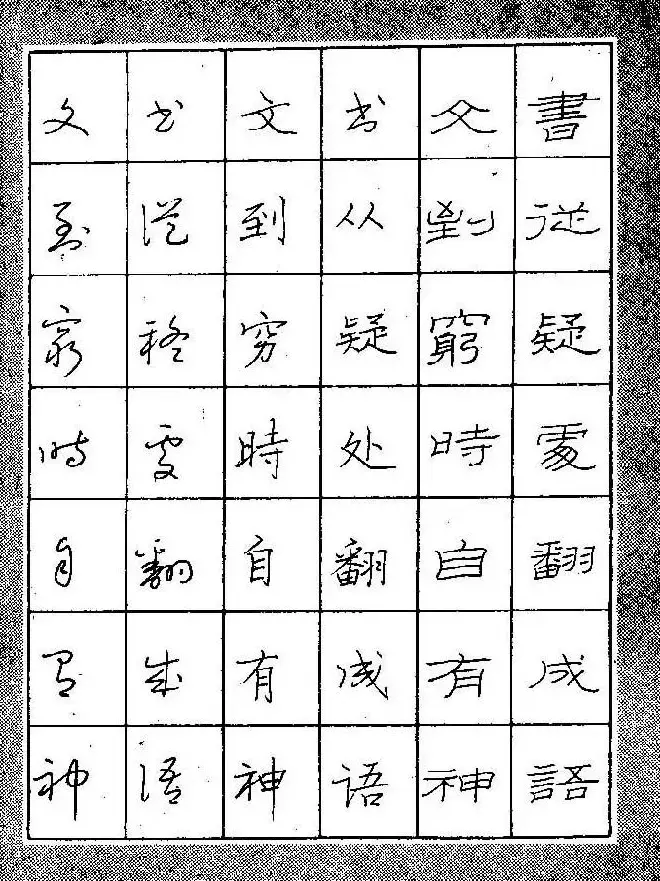 書従疑處翻成語
文到窮時自有神
书从疑处翻成语
文到穷時自有神
书従疑處翻成语
文到窮时自有神